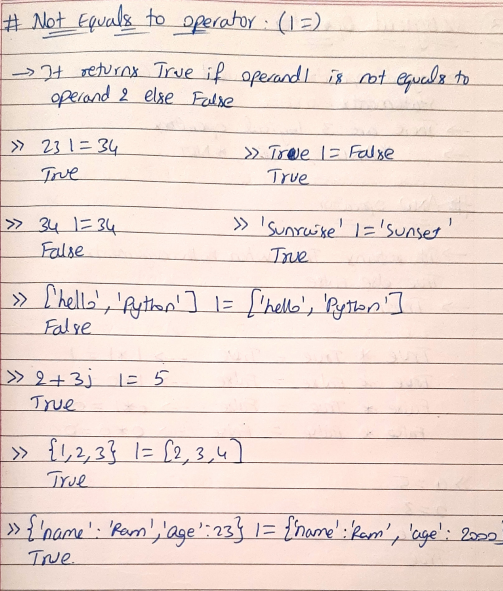 # Not Equals to operator : (!=)
→ It returns True if operand1 is not equals to
operand 2 else False
>> 23 != 34 >> True != False
True True
>> 34 != 34 >> 'Sunraise' != 'Sunset'
False True
>> ['hello', 'Python'] != ['hello', 'Python']
False
>> 2+3j != 5
True
>> {1,2,3} != [2,3,4]
True
>> {'name': 'Ram', 'age': 23} != {'name': 'Ram', 'age': 2000
True.